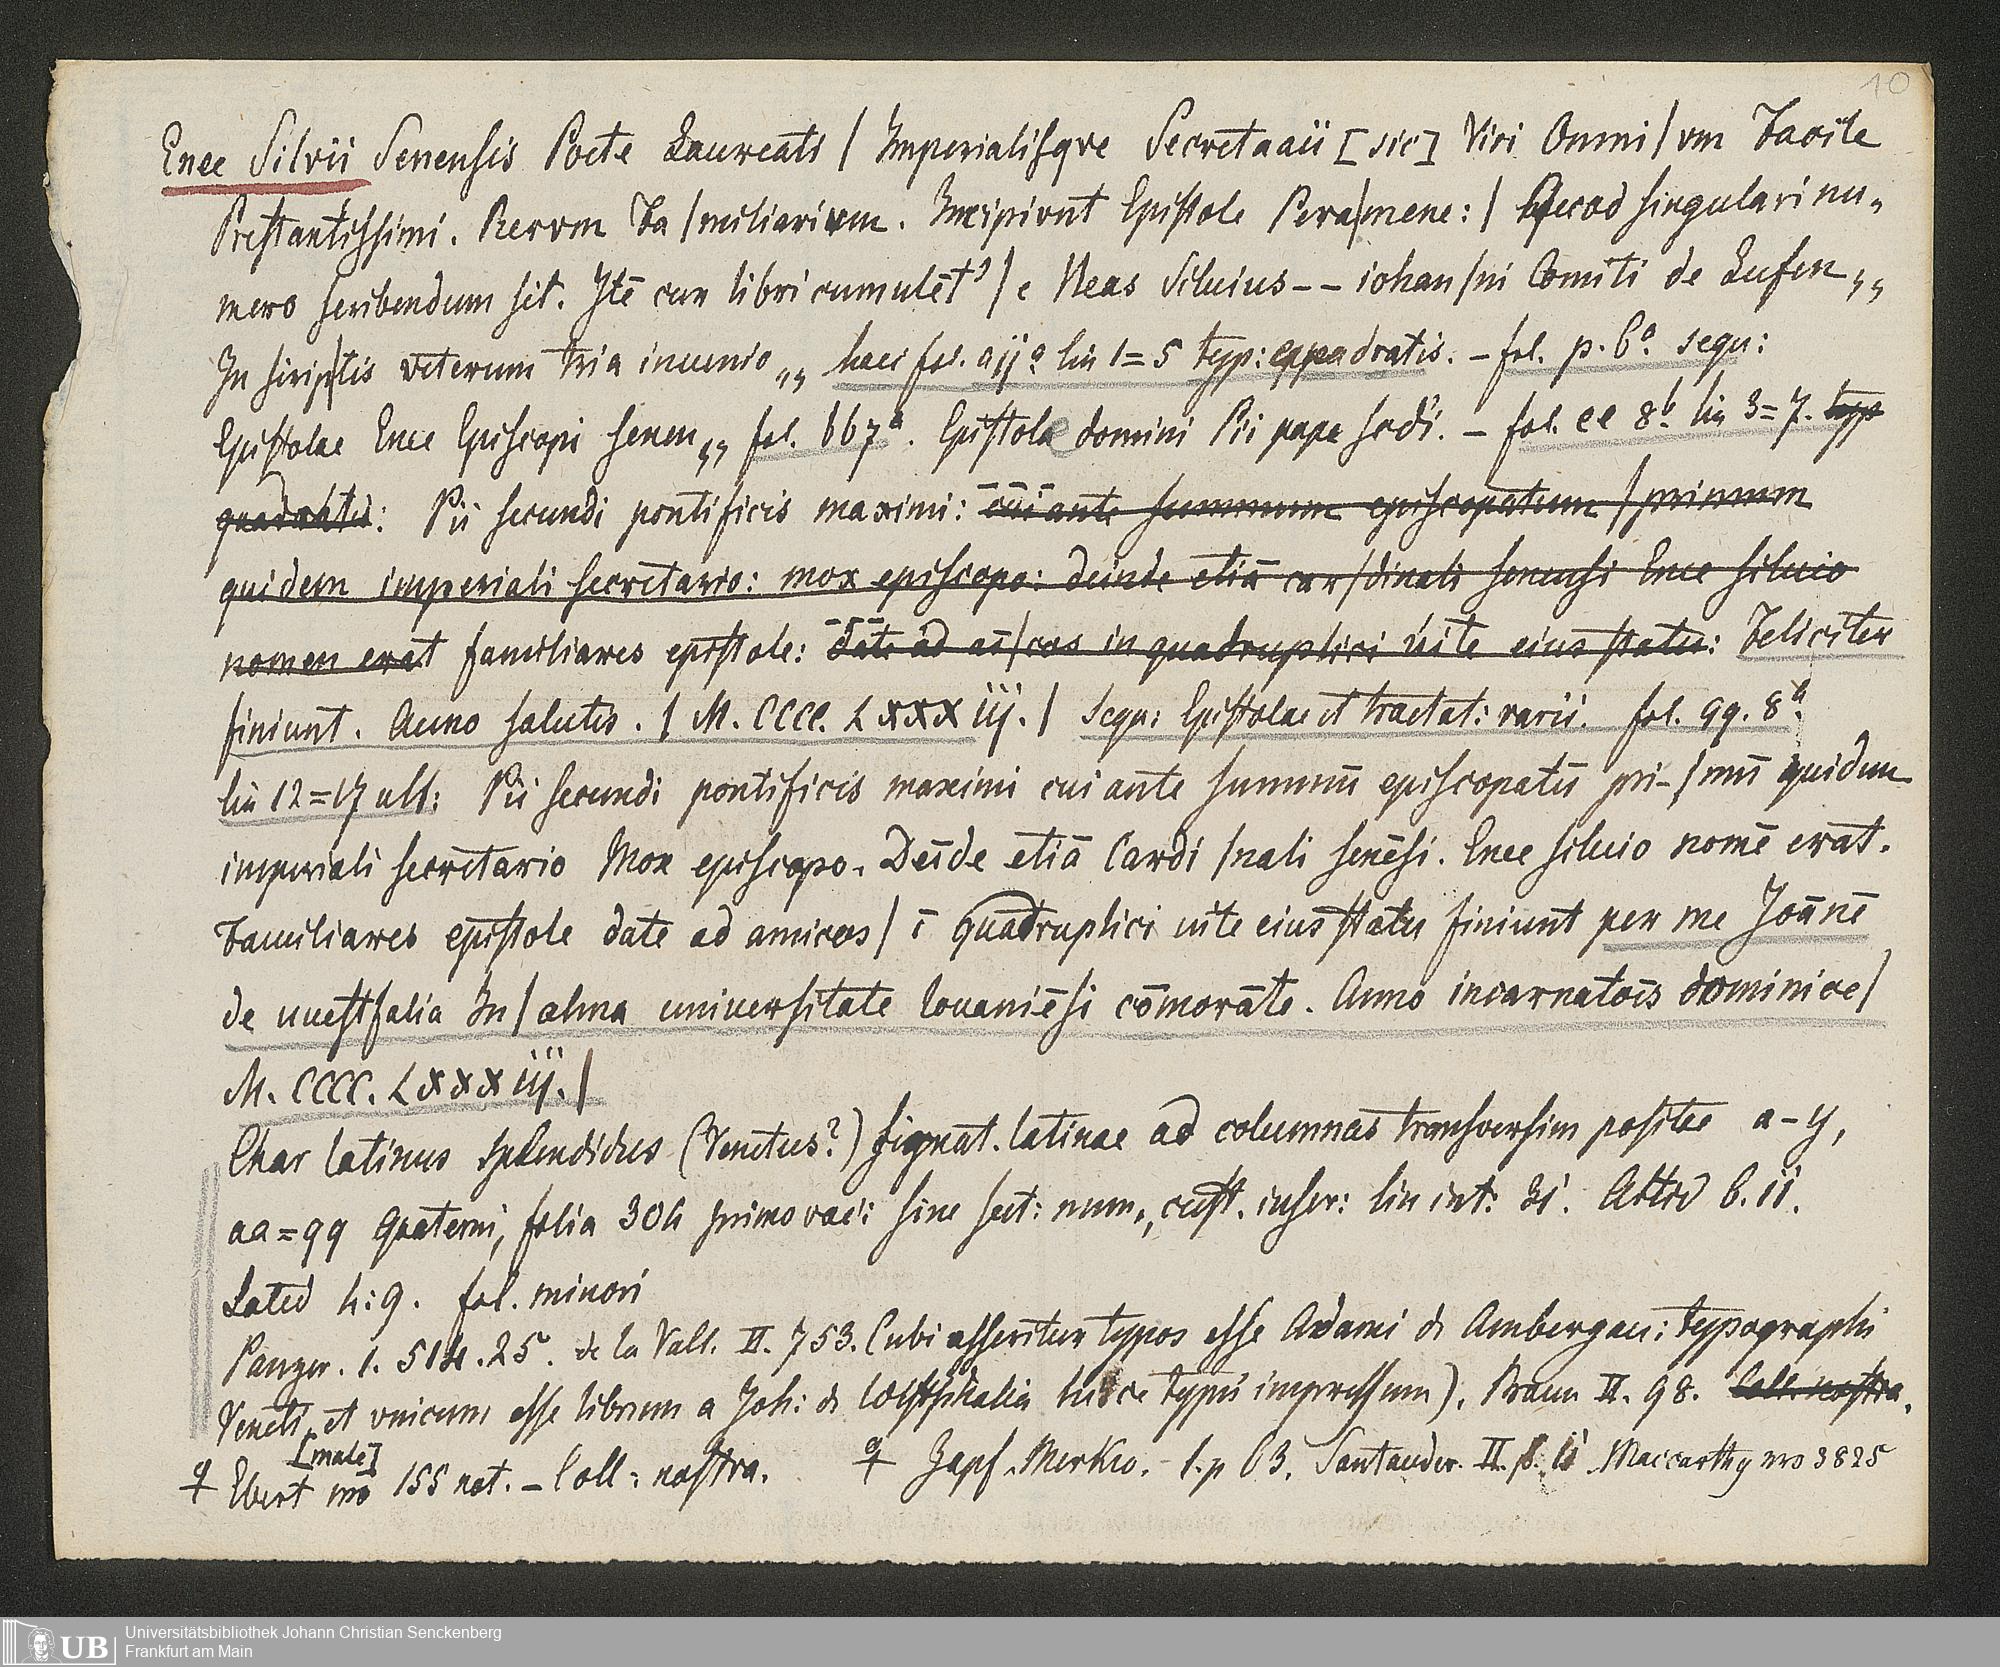 10
Enee Silvii Senensis Poete Laureati / Imperialisqve Secretaaii [sic] Viri Onmi/vm Facile
Prestantissimi. Rervm Fa/miliarivm. Incipivnt Epistole Pera/mene:/ Qvecod singulari nu„
mero scribendum sit. Itē cur libri cumulēt᾿/ e Neas Siluius-- iohan/ni Comiti de Lufen „
In scrip/tis veterum tria inuenio „ haec fol. aij a lin 1=5 typ: quadratis. - fol. p. 6a. sequ:
Epistolae Enee Episcopi senen „ fol. bb7a. Epistola domini Pii pape scdi. - fol. ee 8b. lin 3=7. typ
quadratis: Pii secundi pontificis maximi: cui ante summum episcopatum / primum
quidem imperiali secretario: mox episcopo: deinde etiā car/dinali senensi Enee siluio
nomen erat familiares epistole: date ad aı̄/cos in quadruplici uite eius statu: Feliciter
finiunt. Anno salutis. / M. CCCC. Lxxxiij. / sequ: Epistolae et tractat: varii. fol. qq. 8a.
lin 12=17 ult: Pii secundi pontificis maximi cui ante summū episcopatū pri-/mū quidem
imperiali secretario Mox episcopo. Deīde etiā Cardi/nali senēsi. Enee siluio nomē erat.
Familiares epistole date ad amicos / ī quadruplici uite eius statu finiunt per me Joānē
de uuestfalia In / alma uniuersitate louaniēsi cōmorāte. Anno incarnatōis dominice /
M. CCCC. Lxxxiij. /
Char latinus splendidus (Venetus?) signat. latinae ad columnas transversim positae a-y,
aa=qq quaterni, folia 304 primo vac: sine sect: num., cust. inscr: lin int: 31. Altid 6. ii.
Latid 4:9. fol. minori
Panzer. 1. 514. 25. de la Vall. II. 753. (ubi asseritur typos esse Adami de Ambergau: typographi
Veneti, et vnicum esse librum a Joh: de Westphalia hisce typis impressum). Braun II. 98. Coll. nostra.
[male]
♀ Ebert no 155 not. - Coll: nostra. ♀ Zapf. Merkw. 1. p 63. Santander. II. Maccarthy nro 3825
UB
Universitätsbibliothek Johann Christian Senckenberg
Frankfurt am Main